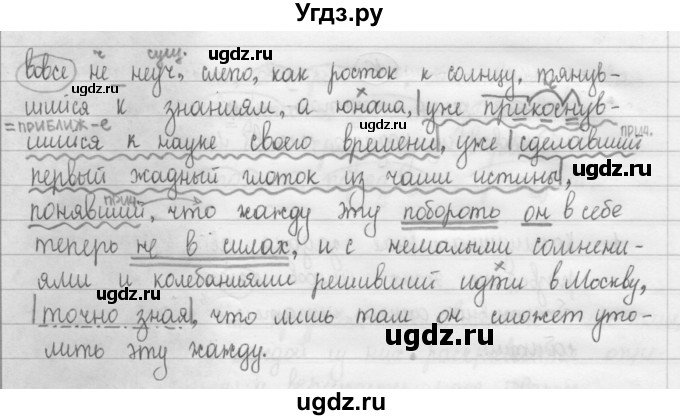 Угдз.ру
ч сущ. ugdz.ru ugdz.ru
вовсе не неуч, слепо, как росток к солнцу, тянув-
шийся к знаниям, а юноша, уже прикоснув-
=приближ-е ugdz.ru прич.
шийся к науке своего времени, уже сделавший
первый жадный глоток из чаши истины,
прич. ugdz.ru ugdz.ru
понявший, что жажду эту побороть он в себе
теперь не в силах, и с немалыми сомнени-
ями и колебаниями решивший идти в Москву,
ugdz.ru ugdz.ru
точно зная, что лишь там он сможет уто-
лить эту жажду.
ugdz.ru ugdz.ru
ugdz.ru